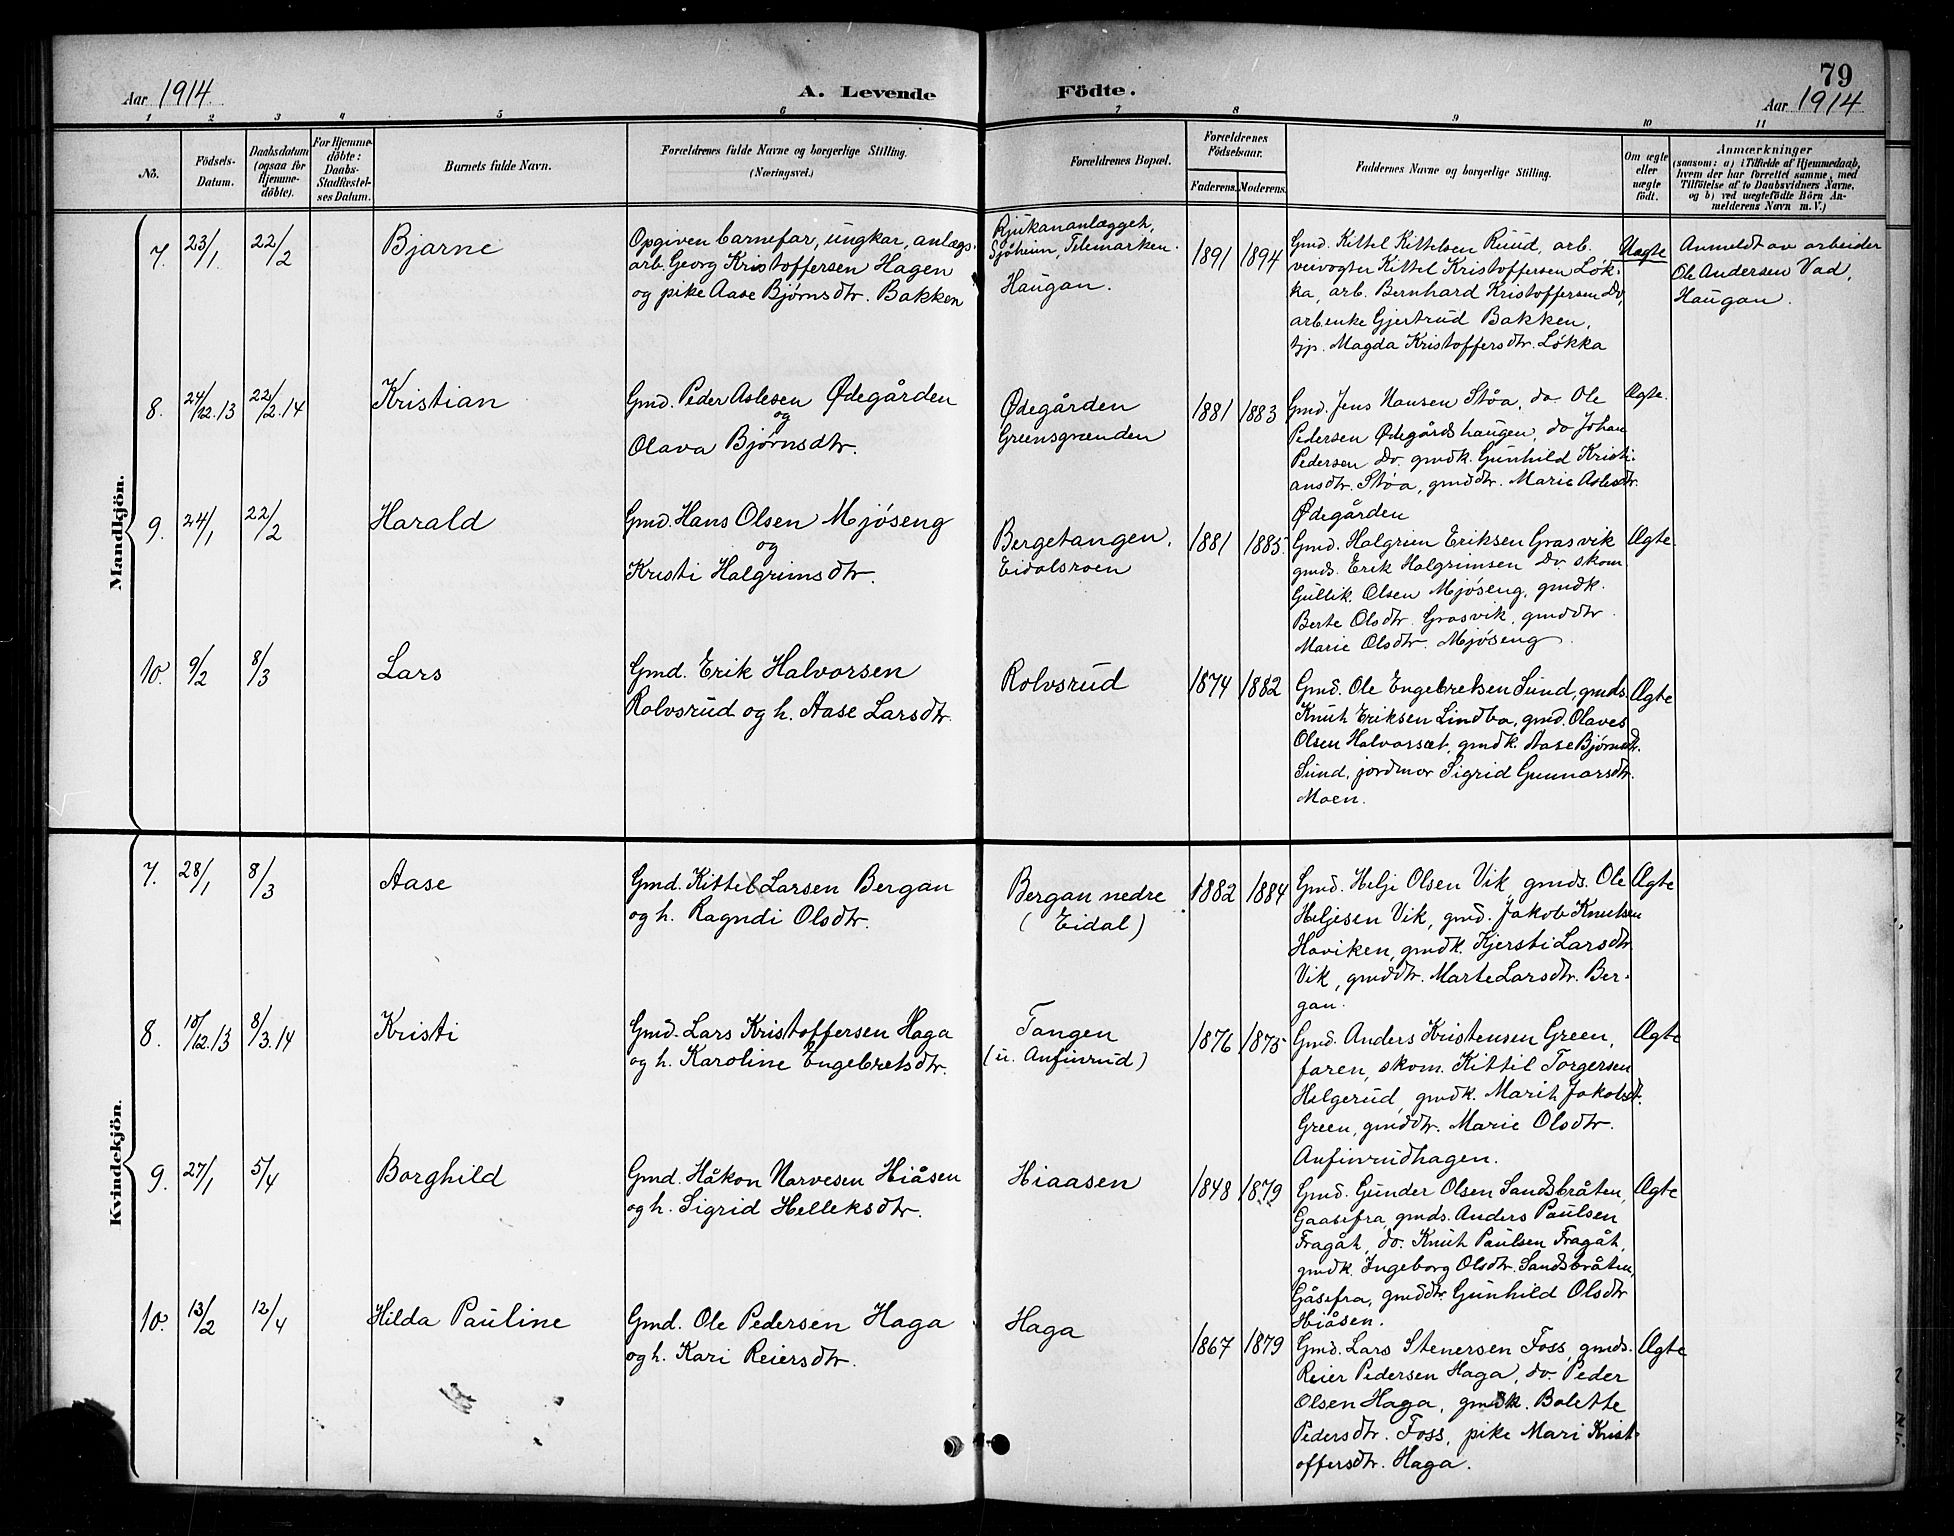 79
Aar 1914.
A. Levende
Födte.
Aar 1914
1 2 3 4 5 6 7 8 9 10 11
No.
Födsels-
Datum.
Daabsdatum
(ogsaa for
Hjemme-
döbte).
For Hjemme-
döbte:
Daabs-
Stadfæstel-
ses Datum.
Barnets fulde Navn.
Forældrenes fulde Navne og borgerlige Stilling.
(Næringsvei.)
Forældrenes Bopæl.
Forældrenes
Födselsaar.
Faderens. Moderens.
Faddernes Navne og borgerlige Stilling.
Om ægte
eller
uægte
födt.
Anmærkninger
(saasom: a) i Tilfælde af Hjemmedaab,
hvem der har forrettet samme, med
Tilföielse af to Daabsvidners Navne,
og b) ved uægtefödte Börn An-
melderens Navn m. V.)
Mandkjön.
7. 23/1 22/2 Bjarne
Opgiven barnefar, ungkar, anlægs-
arb. Georg Kristoffersen Hagen
og pike Aase Bjørnsdtr. Bakken
Rjukananlægget,
Sjøheim, Telemarken.
Haugan.
1891 1894
Gmd. Kittel Kittelsen Ruud, arb.
veivogter Kittel Kristoffersen Løk-
ka, arb. Bernhard Kristoffersen Do,
arb.enke Gjertrud Bakken,
tjp. Magda Kristoffersdtr. Løkka
Uægte
Anmeldt av arbeider
Ole Andersen Vad,
Haugan.
8. 24/12.13 22/2.14 Kristian
Gmd. Peder Aslesen Ødegården
og
Olava Bjørnsdtr.
Ødegården
Greensgrænden
1881 1883
Gmd. Jens Hansen Støa, do Ole
Pedersen Ødegårdshaugen, do Johan
Pedersen Do. gmdk. Gunhild Kristi-
ansdtr. Støa, gmddtr. Marie Aslesdtr.
Ødegården
Ægte.
9. 24/1 22/2 Harald
Gmd. Hans Olsen Mjøseng
og
Kristi Halgrimsdtr.
Bergetangen.
Eidalsroen
1881 1885.
Gmd. Halgrim Eriksen Grasvik
gmds. Erik Halgrimsen Do. skom.
Gullik Olsen Mjøseng, gmdk.
Berte Olsdtr. Grasvik, gmddtr.
Marie Olsdtr. Mjøseng.
Ægte.
10. 9/2 8/3 Lars
Gmd. Erik Halvorsen
Rolvsrud og h. Aase Larsdtr.
Rolvsrud
1874 1882
Gmd. Ole Engebretsen Sund, gmds.
Knut Eriksen Lindbo, gmd. Olaves
Olsen Halvorset, gmdk. Aase Bjørnsdt.
Sund, jordmor Sigrid Gunnarsdtr.
Moen.
Ægte
Kvindekjön.
7. 28/1 8/3 Aase
Gmd. Kittel Larsen Bergan
og h. Ragndi Olsdtr.
Bergan nedre
(Eidal)
1882 1884
Gmd. Helje Olsen Vik, gmds. Ole
Heljesen Vik, gmd. Jakob Knutsen
Haviken, gmdk. Kjersti Larsdtr.
Vik, gmddtr. Marte Larsdtr. Ber-
gan.
Ægte
8. 10/12.13 8/3.14 Kristi
Gmd. Lars Kristoffersen Haga
og h. Karoline Engebretsdtr.
Tangen
(u. Anfinrud)
1876 1875
Gmd. Anders Kristensen Green,
faren, skom. Kittil Torgersen
Helgerud, gmdk. Marit Jakobsdt.
Green, gmddtr. Marie Olsdtr.
Anfinrudhagen.
Ægte
9. 27/1 5/4 Borghild
Gmd. Håkon Narvesen Hiåsen
og h. Sigrid Helleksdtr.
Hiaasen
1848 1879
Gmd. Gunder Olsen Sandsbråten,
Gaasefra, gmds. Anders Paulsen
Fragåt, do. Knut Paulsen Fragåt,
gmdk. Ingeborg Olsdtr. Sandsbråten,
Gåsefra, gmddtr. Gunhild Olsdtr
Hiåsen.
Ægte
10. 13/2 12/4 Hilda Pauline
Gmd. Ole Pedersen Haga
og h. Kari Reiersdtr.
Haga
1867 1879
Gmd. Lars Stenersen Foss, gmds.
Reier Pedersen Haga, do. Peder
Olsen Haga, gmdk. Bolette
Pedersdtr. Foss, pike Mari Krist-
offersdtr. Haga.
Ægte